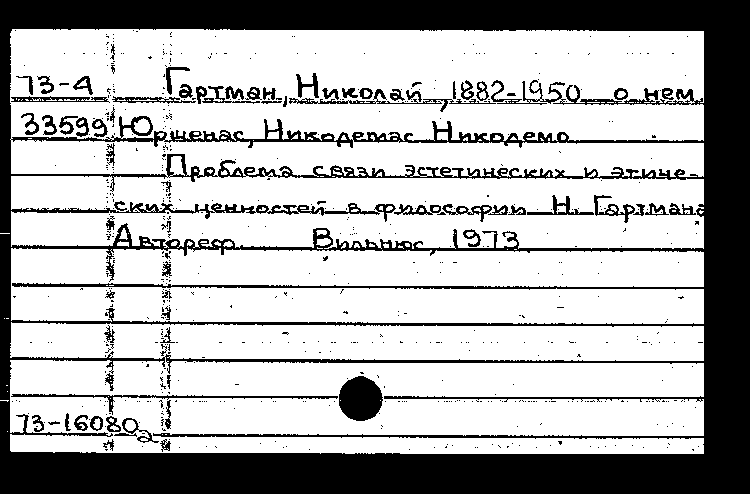 73-4 Гартман, Николай, 1882-1950 о нем.
33599 Юршенас, Никодемас Никодемо
Проблема связи эстетических и этиче-
ских ценностей в философии Н. Гартмана
Автореф. Вильнюс, 1973
73-16080а